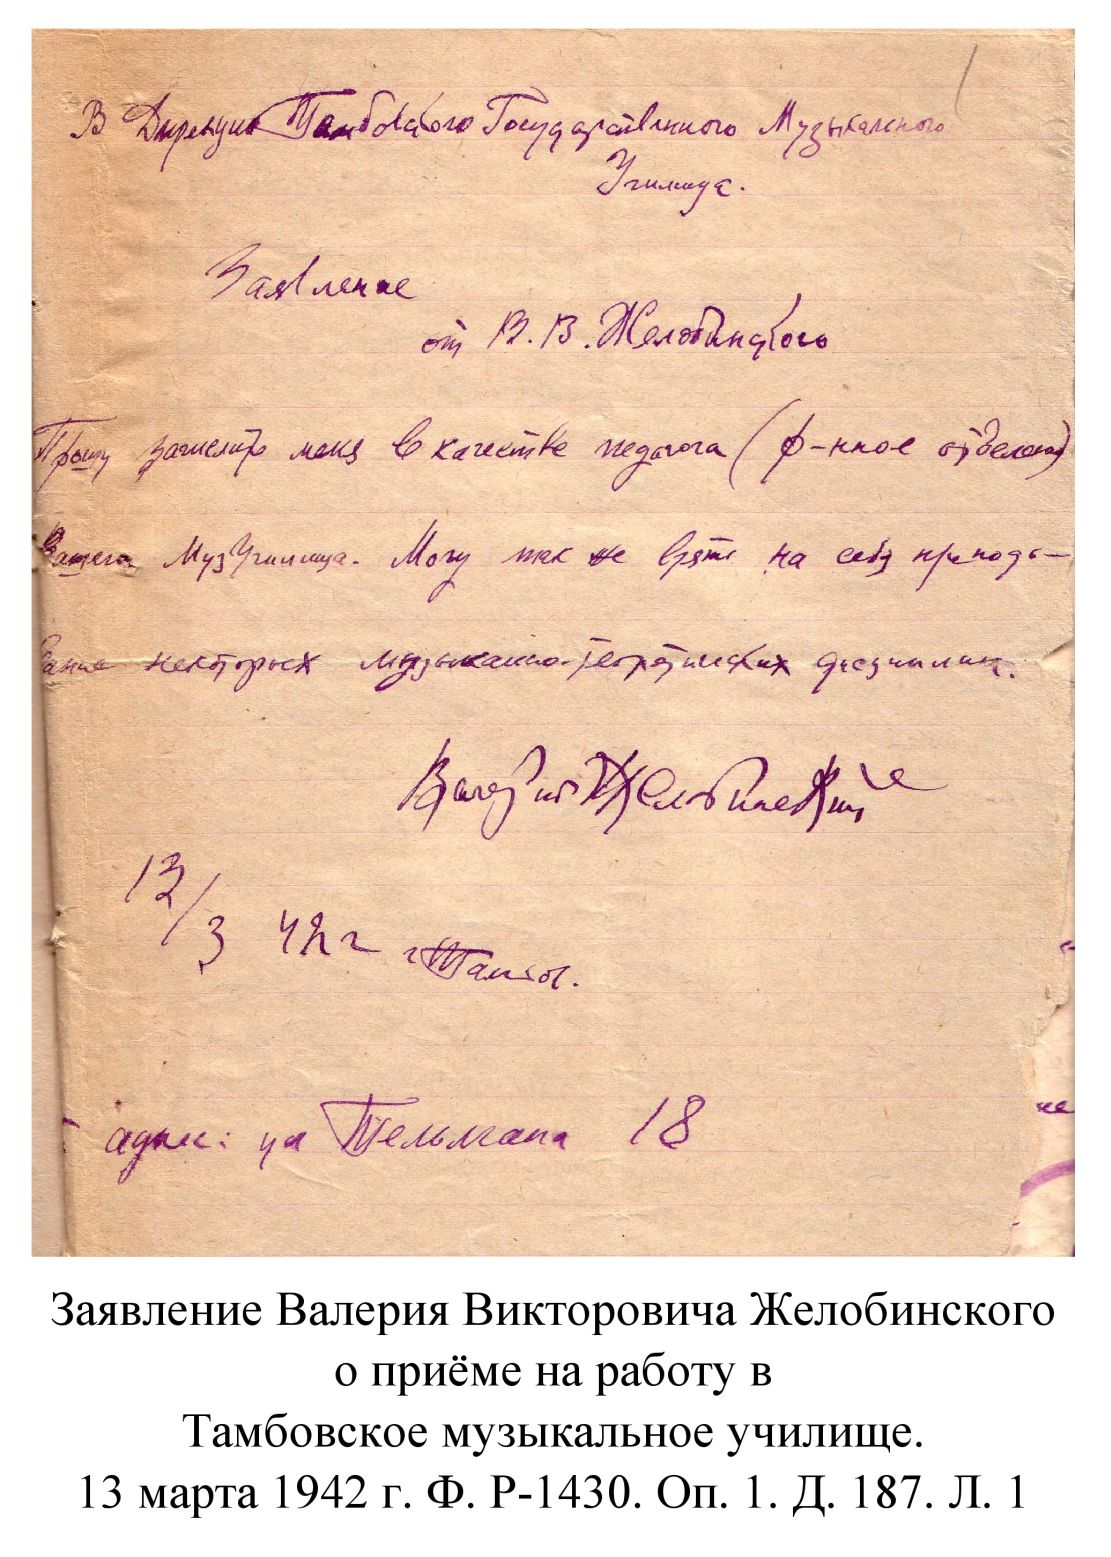 1
В Дирекцию Тамбовского Государственного Музыкального
Училища.
Заявление
от В. В. Желобинского
Прошу зачислить меня в качестве педагога (ф-нное отделение)
Вашего МузУчилища. Могу так же взять на себя препода-
вание некоторых музыкально-теоретических дисциплин.
Валерий Желобинский
13/3 42 г г Тамбов.
адрес: ул Тельмана 18
Заявление Валерия Викторовича Желобинского
о приёме на работу в
Тамбовское музыкальное училище.
13 марта 1942 г. Ф. Р-1430. Оп. 1. Д. 187. Л. 1